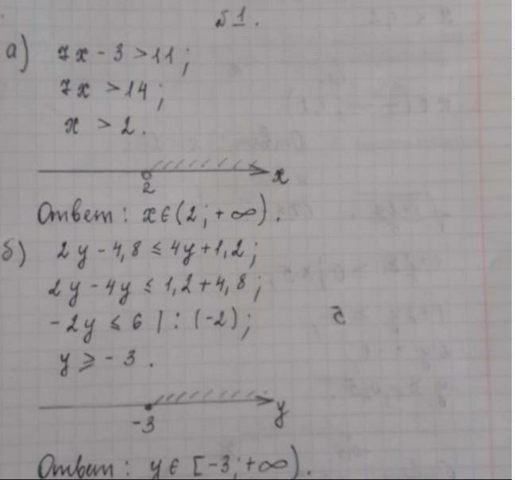 №1.
а) 7x - 3 > 11;
7x > 14;
x > 2.
2 x
Ответ: x∈(2; +∞).
б) 2y - 4,8 ≤ 4y + 1,2;
2y - 4y ≤ 1,2 + 4,8;
-2y ≤ 6 | : (-2);
y ≥ -3.
-3 y
Ответ: y∈[-3; +∞).